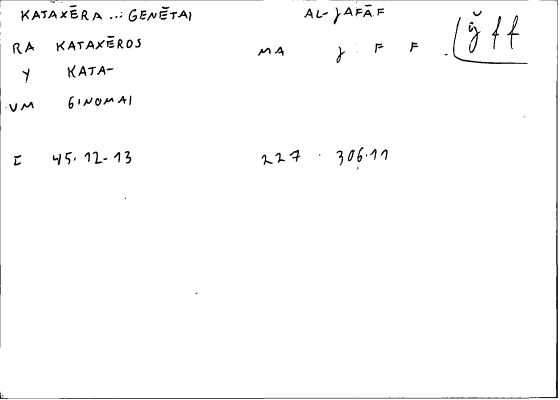 KATAXĒRA ..: GENĒTAI AL-JAFĀF
RA KATAXĒROS MA J F F ǰ f f
Y KATA-
UM GINOMAI
I 45.12-13 227 306.11